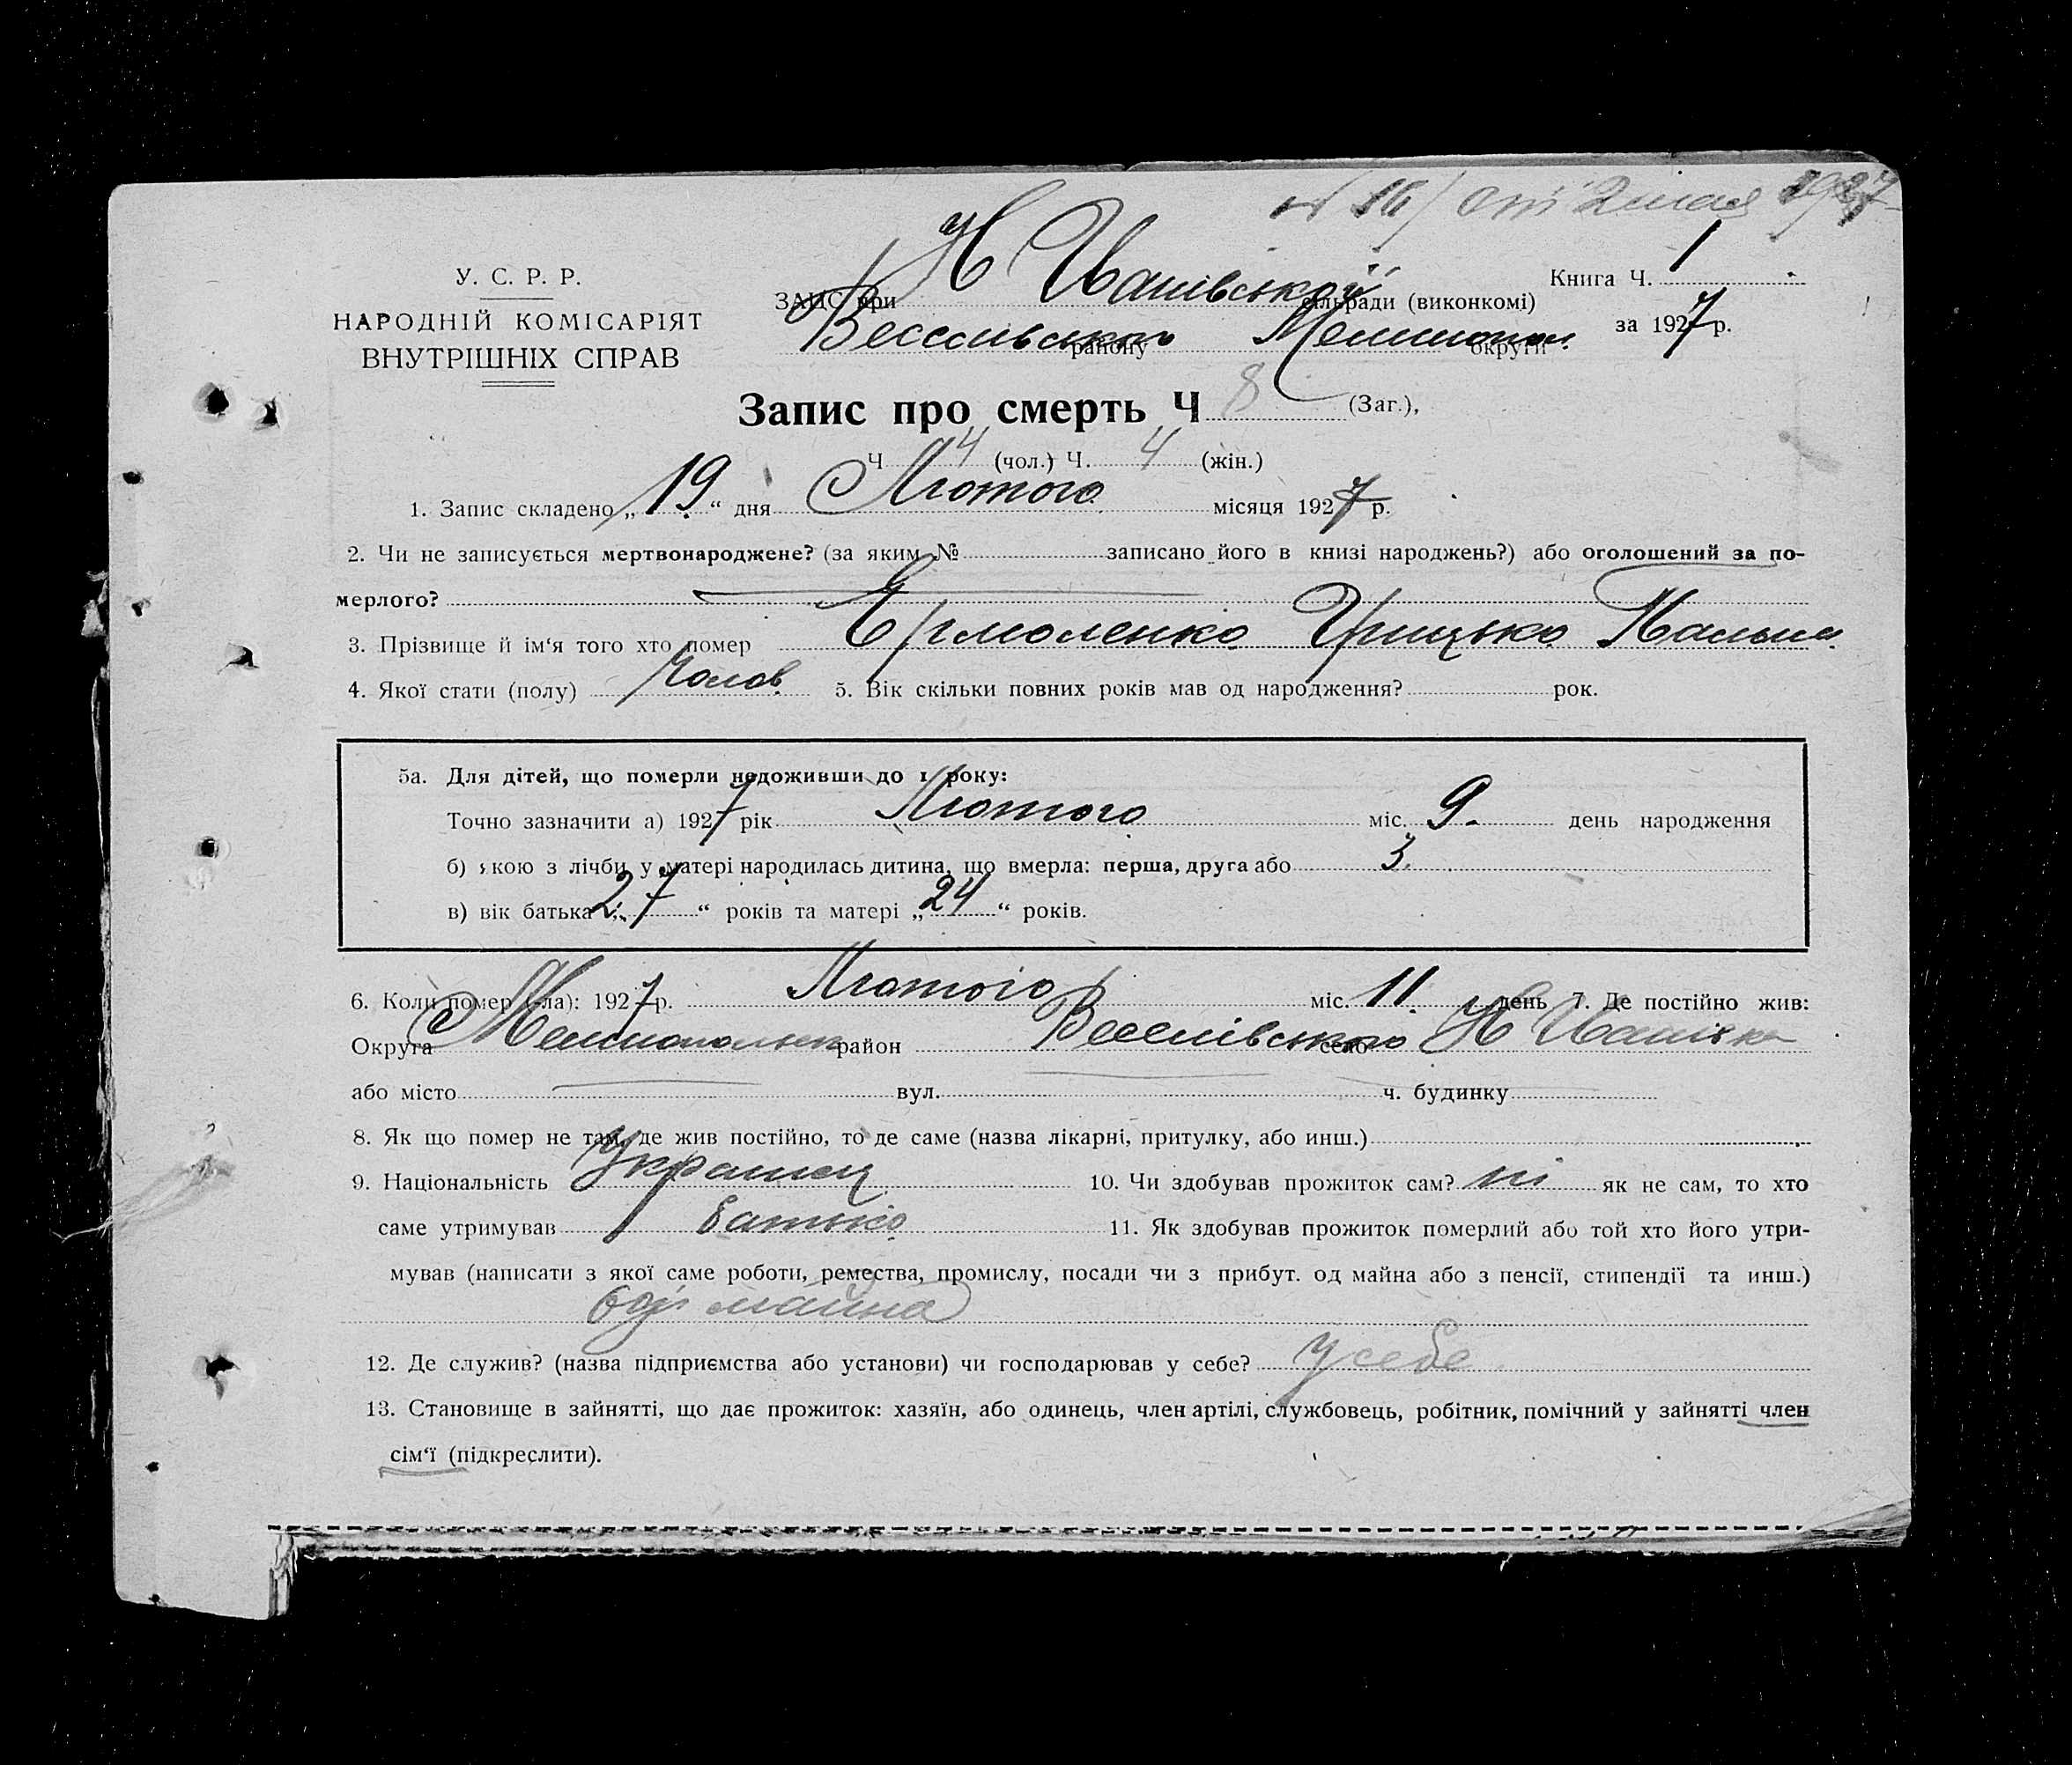 от 2 мая 1927
У. С. Р. Р.
НАРОДНІЙ КОМІСАРІЯТ
ВНУТРІШНІХ СПРАВ
ЗАПС при Н Іванівській сільради (виконкомі)
Веселівського району Мелитопол. округи
Книга Ч. 1
за 1927 р.
Запис про смерть Ч 8 (Заг.),
Ч 4 (чол.) Ч. 4 (жін.)
1. Запис складено „19“ дня Лютого місяця 1927 р.
2. Чи не записується мертвонароджене? (за яким № записано його в книзі народжень?) або оголошений за по-
мерлого?
3. Прізвище й ім‘я того хто помер Ермоленко Грицько
4. Якої стати (полу) Чолов. 5. Вік скільки повних років мав од народження? рок.
5а. Для дітей, що померли недоживши до 1 року:
Точно зазначити а) 1927 рік Лютого міс. 9. день народження
б) якою з лічби у матері народилась дитина, що вмерла: перша, друга або 3.
в) вік батька „27“ років та матері „24“ років.
6. Коли помер (-ла): 1927 р. Лютого міс. 11. день 7. Де постійно жив:
Округа Мелитопольськ район Веселівського село Н Іванівка
або місто вул. ч. будинку
8. Як що помер не там, де жив постійно, то де саме (назва лікарні, притулку, або инш.)
9. Національність Украінец 10. Чи здобував прожиток сам? ні як не сам, то хто
саме утримував батько 11. Як здобував прожиток померлий або той хто його утри-
мував (написати з якої саме роботи, ремества, промислу, посади чи з прибут. од майна або з пенсії, стипендії та инш.)
од майна
12. Де служив? (назва підприємства або установи) чи господарював у себе? у себе
13. Становище в зайнятті, що дає прожиток: хазяїн, або одинець, член артілі, службовець, робітник, помічний у зайнятті член
сім‘ї (підкреслити).